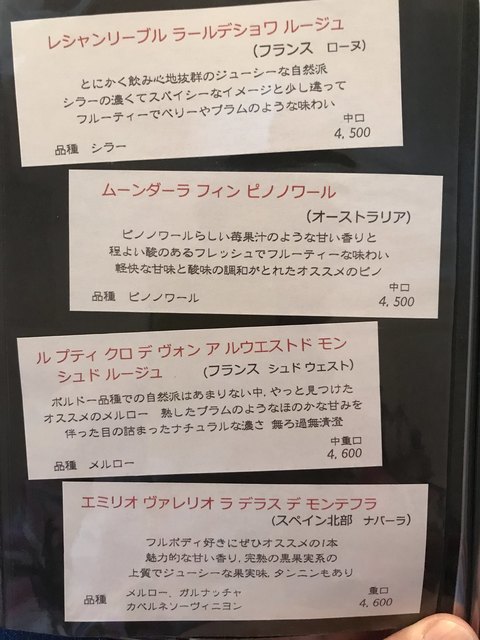 レシャンリーブル ラールデショワ ルージュ
(フランス ローヌ)
とにかく飲み心地抜群のジューシーな自然派
シラーの濃くてスパイシーなイメージと少し違って
フルーティーでベリーやプラムのような味わい
中口
品種 シラー 4,500
ムーンダーラ フィン ピノノワール
(オーストラリア)
ピノノワールらしい苺果汁のような甘い香りと
程よい酸のあるフレッシュでフルーティーな味わい
軽快な甘味と酸味の調和がとれたオススメのピノ
中口
品種 ピノノワール 4,500
ル プティ クロ デ ヴォン ア ルウエストド モン
シュド ルージュ (フランス シュド ウェスト)
ボルドー品種での自然派はあまりない中、やっと見つけた
オススメのメルロー 熟したプラムのようなほのかな甘みを
伴った目の詰まったナチュラルな濃さ 無ろ過無清澄
中重口
品種 メルロー 4,600
エミリオ ヴァレリオ ラ デラス デ モンテフラ
(スペイン北部 ナバーラ)
フルボディ好きにぜひオススメの1本
魅力的な甘い香り、完熟の黒果実系の
上質でジューシーな果実味、タンニンもあり
品種 メルロー、ガルナッチャ 重口
カベルネソーヴィニヨン 4,600